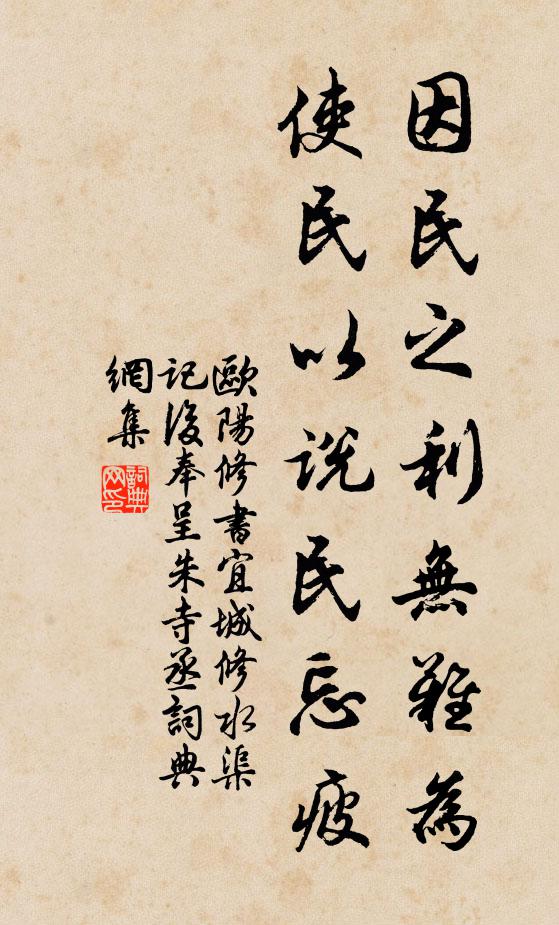 因民之利無難為
使民以説民忘疲
歐陽修書宜城修水渠
記後奉呈朱寺丞詞典
網集
詞典
网印